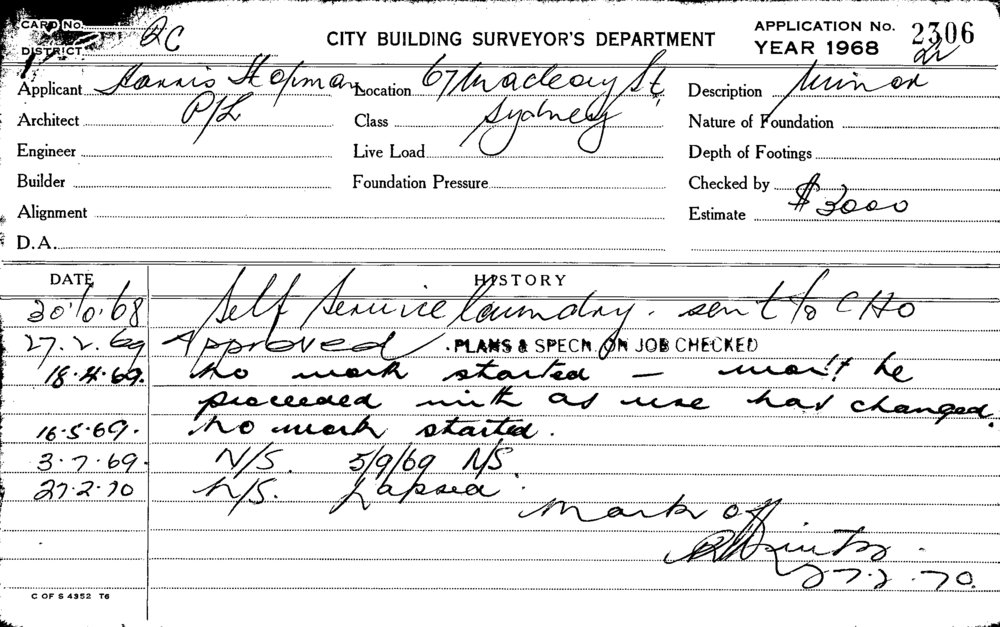 CARD No.
DISTRICT QC
CITY BUILDING SURVEYOR'S DEPARTMENT
APPLICATION No. 2306
YEAR 1968
Applicant Harris Hopman P/L
Location 67 Macleay St, Sydney
Description Minor
Architect
Class
Nature of Foundation
Engineer
Live Load
Depth of Footings
Builder
Foundation Pressure
Checked by
Alignment
Estimate $3000
D.A.
DATE HISTORY
Self Service laundry. sent to CHO
27.2.69 Approved PLANS & SPECN. ON JOB CHECKED
18.4.69. No work started — won't be
proceeded with as use has changed.
16.5.69. No work started.
3.7.69. N/S. 5/9/69 N/S.
27.2.70 N/S. Lapsed.
Mark off
27.2.70.
C OF S 4352 T6